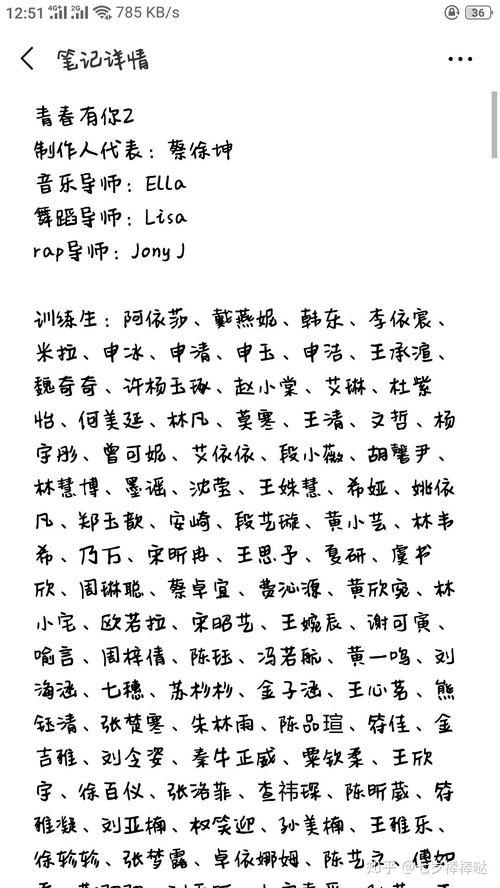 12:51 4G 2G 785 KB/s 36
笔记详情
青春有你2
制作人代表：蔡徐坤
音乐导师：Ella
舞蹈导师：Lisa
rap导师：Jony J
训练生：阿依莎、戴燕妮、韩东、李依宸、
米拉、申冰、申清、申玉、申洁、王承渲、
魏奇奇、许杨玉琢、赵小棠、艾琳、杜紫
怡、何美延、林凡、莫寒、王清、文哲、杨
宇彤、曾可妮、艾依依、段小薇、胡馨尹、
林慧博、墨谣、沈莹、王姝慧、希娅、姚依
凡、郑玉歆、安崎、段艺璇、黄小芸、林韦
希、乃万、宋昕冉、王思予、夏研、虞书
欣、周琳聪、蔡卓宜、费沁源、黄欣宛、林
小宅、欧若拉、宋昭艺、王婉辰、谢可寅、
喻言、周梓倩、陈珏、冯若航、黄一鸣、刘
海涵、七穗、苏杉杉、金子涵、王心茗、熊
钰清、张楚寒、朱林雨、陈品瑄、符佳、金
吉雅、刘令姿、秦牛正威、粟钦柔、王欣
宇、徐百仪、张洛菲、查祎琛、陈昕葳、符
雅凝、刘亚楠、权笑迎、孙美楠、王雅乐、
徐轸轸、张梦露、卓依娜姆、陈艺文、傅如
知乎 @七夕棒棒哒